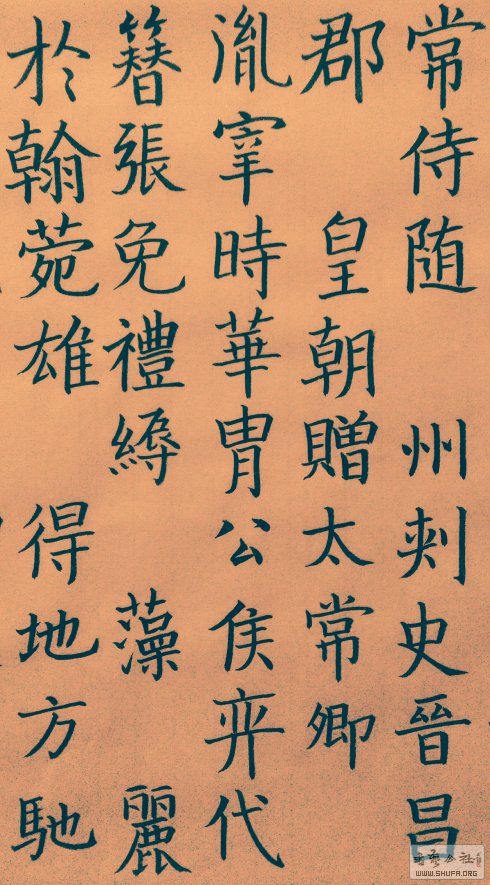 常侍随 州刾史晉昌
郡 皇朝贈太常卿
胤宰時華冑公侯弈代
簪張免禮縟 藻 麗
於翰菀雄 得地方馳
公社
WWW.SHUFA.ORG